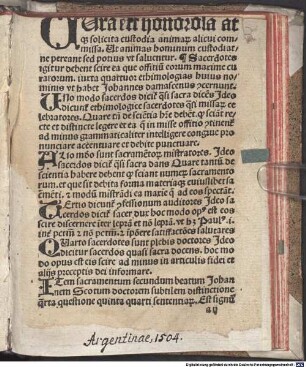 Ulta est honorosa at
q̃ solicita custodia animaꝝ alicui com
missa. Ut animas hominum custodiat
ne pereant sed potius vt saluentur. ¶ Sacerdotes
igitur debent scire ea que officiũ eorum maxime cu
raꝛorum. iuxta quattuor ethimologias huius no/
minis vt habet Johannes damascenus
Uno modo sacerdos dicit̃ q̃si sacra dicẽs Ideo
dicunt̃ ethimologice sacerdotes q̃si missaꝝ ce
lebratores. Quare tñ de sciẽtia hr̃e debẽt q̃ sciãt re
cte et distincte legere et ea q̃ in misse officio
ad minus grammaticaliter intelligere congrue pro
nunciare accentuare et debite punctuare.
Alio mõ sunt sacramẽtoꝝ ministratores. Ideo
sacerdos dicit̃ q̃si sacra dans Quare tantũ de
scientia habere debent q̃ sciant numeꝝ sacramento
rum. et que sit debita forma materiaqꝫ cuiuslibet sa
cramẽti. ⁊ modũ ministrãdi ea maxie q̃ ad eos spectãt.
Tertio dicunt̃ ꝯfessionum auditores Ideo sa
cerdos dicit̃ sacer dux hoc modo opꝰ est eos
scire discernere inter leprã et nõ leprã. vt hꝫ Paulꝰ.
Quarto sacerdotes sunt plebis doctores Ideo
dicitur sacerdos quasi sacra docens. hoc mo
do opus est eis scire ad minus in articulis fidei et
alijs preceptis dei informare.
Item sacramentum secundum beatum Johan
nem Scotum doctorem subtilem distinctione
q̃rta questione quinta quarti sententiaꝝ. Est signũ
Argentinae, 1504.